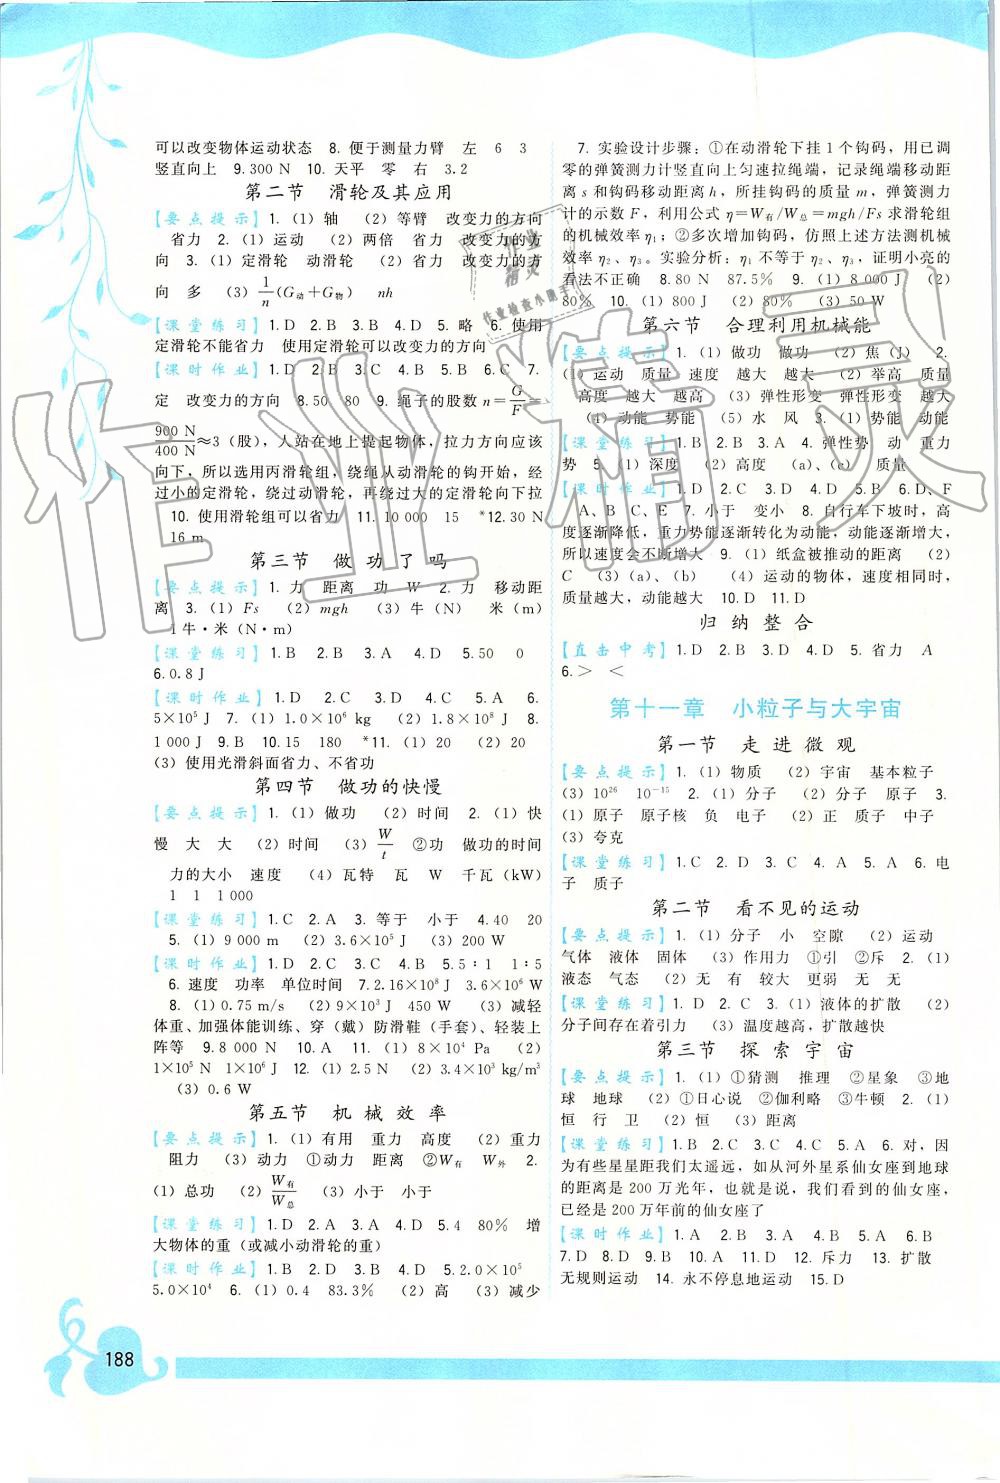 可以改变物体运动状态　8. 便于测量力臂　左　6　3
竖直向上　9.300 N　10. 天平　零　右　3.2
第二节　滑轮及其应用
【要点提示】1.（1）轴　（2）等臂　改变力的方向
省力　2.（1）运动　（2）两倍　省力　改变力的方
向　3.（1）定滑轮　动滑轮　（2）省力　改变力的方
向　多　（3）1/n(G动＋G物)　nh
【课堂练习】1.D　2.B　3.B　4.D　5. 略　6. 使用
定滑轮不能省力　使用定滑轮可以改变力的方向
【课时作业】1.D　2.B　3.C　4.B　5.B　6.C　7.
定　改变力的方向　8.50　80　9. 绳子的股数 n＝G/F＝
900 N/400 N≈3（股），人站在地上提起物体，拉力方向应该
向下，所以选用丙滑轮组，绕绳从动滑轮的钩开始，经
过小的定滑轮，绕过动滑轮，再绕过大的定滑轮向下拉
10. 使用滑轮组可以省力　11.10 000　15　*12.30 N
16 m
第三节　做功了吗
【要点提示】1. 力　距离　功　W　2. 力　移动距
离　3.（1）Fs　（2）mgh　（3）牛（N）　米（m）
1牛·米（N·m）
【课堂练习】1.B　2.B　3.A　4.D　5.50　0
6.0.8 J
【课时作业】1.D　2.C　3.D　4.D　5.A　6.
5×10⁵ J　7.（1）1.0×10⁶ kg　（2）1.8×10⁸ J　8.
1 000 J　9.B　10.15　180　*11.（1）20　（2）20
（3）使用光滑斜面省力、不省功
第四节　做功的快慢
【要点提示】1.（1）做功　（2）时间　2.（1）快
慢　大　大　（2）时间　（3）W/t　②功　做功的时间
力的大小　速度　（4）瓦特　瓦　W　千瓦（kW）
1　1　1 000
【课堂练习】1.C　2.A　3. 等于　小于　4.40　20
5.（1）9 000 m　（2）3.6×10⁵ J　（3）200 W
【课时作业】1.D　2.A　3.C　4.B　5.5∶1　1∶5
6. 速度　功率　单位时间　7.2.16×10⁸ J　3.6×10⁶ W
8.（1）0.75 m/s　（2）9×10³ J　450 W　（3）减轻
体重、加强体能训练、穿（戴）防滑鞋（手套）、轻装上
阵等　9.8 000 N　10.A　11.（1）8×10⁴ Pa　（2）
1×10⁵ N　1×10⁶ J　12.（1）2.5 N　（2）3.4×10⁴ J
（3）0.6 W
第五节　机械效率
【要点提示】1.（1）有用　重力　高度　（2）重力
阻力　（3）动力　①动力　距离　②W有　W外　2.
（1）总功　（2）W有/W总　（3）小于　小于
【课堂练习】1.D　2.A　3.A　4.D　5.4　80％　增
大物体的重（或减小动滑轮的重）
【课时作业】1.D　2.B　3.B　4.C　5.2.0×10⁵
5.0×10⁴　6.（1）0.4　83.3％　（2）高　（3）减少
7. 实验设计步骤：①在动滑轮下挂1个钩码，用已调
零的弹簧测力计竖直向上匀速拉绳端，记录绳端移动
距离 s 和钩码移动距离 h，所挂钩码的质量 m，弹簧测力
计的示数 F，利用公式 η＝W有/W总＝mgh/Fs 求滑轮组
的机械效率 η₁；②多次增加钩码，仿照上述方法测机械
效率 η₂、η₃。实验分析：η₁ 不等于 η₂、η₃，证明小亮的
看法不正确　8.80 N　87.5％　9.（1）8 000 J　（2）
80％　10.（1）800 J　（2）80％　（3）50 W
第六节　合理利用机械能
【要点提示】1.（1）做功　做功　（2）焦（J）　2.
（1）运动　质量　速度　越大　越大　（2）举高　质量
高度　越大　越大　（3）弹性形变　弹性形变　越大
（4）动能　势能　（5）水　风　3.（1）势能　动能
【课堂练习】1.B　2.B　3.A　4. 弹性势　动　重力
势　5.（1）深度　（2）高度　（a）、（b）　质量
【课时作业】1.D　2.C　3.D　4.D　5.B　6.D、F
A、B、C、E　7. 小于　变小　8. 自行车下坡时，高
度逐渐降低，重力势能逐渐转化为动能，动能逐渐增大，
所以速度会不断增大　9.（1）纸盒被推动的距离　（2）
C　（3）（a）、（b）　（4）运动的物体，速度相同时，
质量越大，动能越大　10.D　11.D
归纳整合
【直击中考】1.D　2.B　3.D　4.D　5. 省力　A
6.＞　＜
第十一章　小粒子与大宇宙
第一节　走进微观
【要点提示】1.（1）物质　（2）宇宙　基本粒子
（3）10²⁶　10⁻¹⁵　2.（1）分子　（2）分子　原子　3.
（1）原子　原子核　负　电子　（2）正　质子　中子
（3）夸克
【课堂练习】1.C　2.D　3.C　4.A　5.A　6. 电
子　质子
第二节　看不见的运动
【要点提示】1.（1）分子　小　空隙　（2）运动
气体　液体　固体　（3）作用力　①引　②斥　2.（1）
液态　气态　（2）无　有　较大　更弱　无　无
【课堂练习】1.D　2.C　3.（1）液体的扩散　（2）
分子间存在着引力　（3）温度越高，扩散越快
第三节　探索宇宙
【要点提示】1.（1）①猜测　推理　②星象　③地
球　地球　（2）①日心说　②伽利略　③牛顿　2.（1）
恒　行　卫　（2）恒　（3）距离
【课堂练习】1.B　2.C　3.C　4.C　5.A　6. 对，因
为有些星星距我们太遥远，如从河外星系仙女座到地球
的距离是 200 万光年，也就是说，我们看到的仙女座，
已经是 200 万年前的仙女座了
【课时作业】1.A　2.C　3.B　4.A　5.A　6.B
7.D　8.D　9.B　10.A　11.D　12. 斥力　13. 扩散
无规则运动　14. 永不停息地运动　15.D
188
作业精灵
作业精灵
作业检查小助手